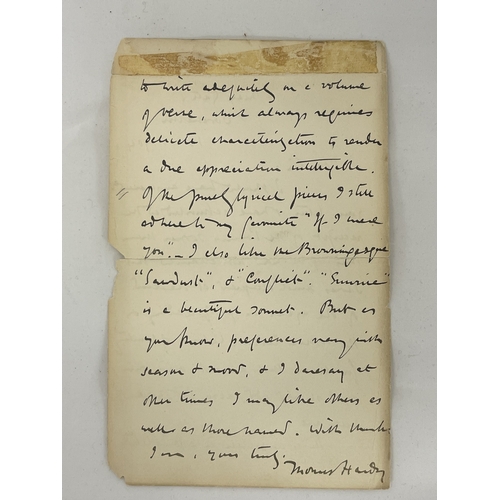 to write adequately on a volume
of verse, which always requires
delicate characterization to render
a due appreciation intelligible.
Of the purely lyrical pieces I still
adhere to my favourite "If I were
you" — I also like the Browningesque
"Sawdust", & "Conflict". "Sunrise"
is a beautiful sonnet. But as
you know, preferences vary with
season & mood, & I daresay at
other times I may like others as
well as those named. With thanks
I am, yours truly,
Thomas Hardy